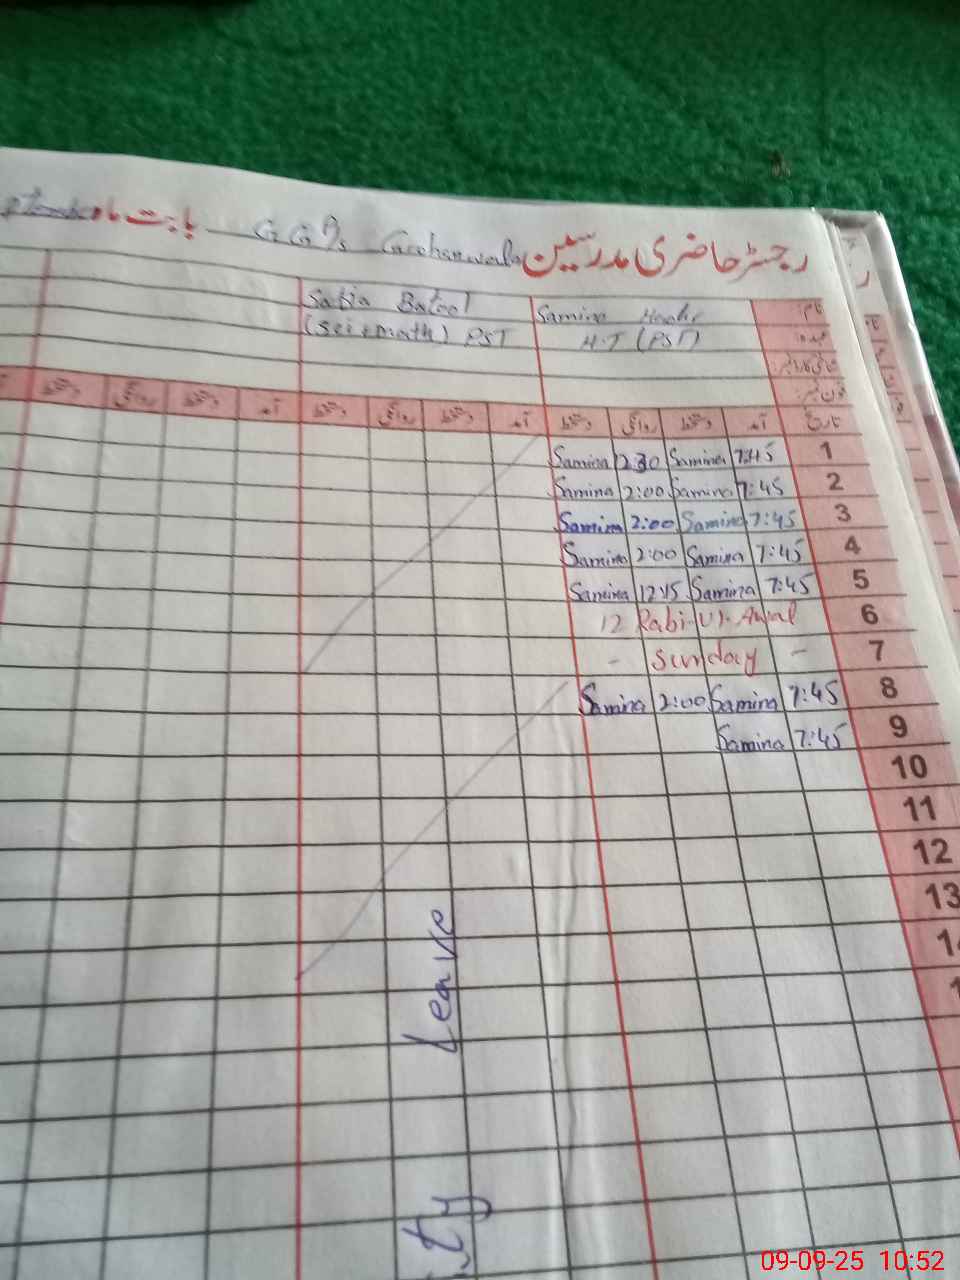 رجسٹر حاضری مدرسین G G P/s بابت ماہ
نام:
Samina H.T (PST)
Safia Batool
(Sci+math) PST
عہدہ:
فون نمبر:
تاریخ آمد دستخط روانگی دستخط آمد دستخط روانگی دستخط آمد دستخط روانگی دستخط
1 7:45 Samina 2:30 Samina
2 7:45 Samina 2:00 Samina
3 7:45 Samina 2:00 Samina
4 7:45 Samina 2:00 Samina
5 7:45 Samina 12:15 Samina
6 12 Rabi-Ul-Awal
7 - Sunday -
8 7:45 Samina 2:00 Samina
9 7:45 Samina
10
11
12
13
Leave
ty
09-09-25 10:52